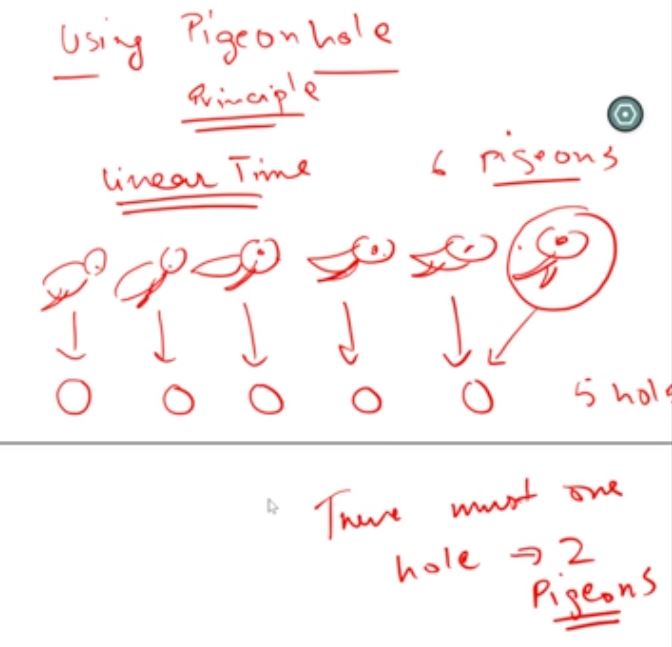 Using Pigeonhole
Principle
Linear Time
6 pigeons
5 hol
There must one
hole ⇒ 2
Pigeons